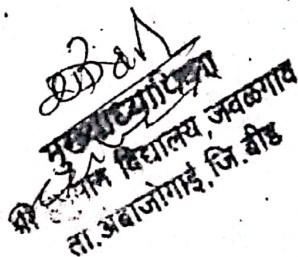 मुख्याध्यापिका
श्री हनुमान विद्यालय, जवळगाव
ता. अंबाजोगाई, जि. बीड